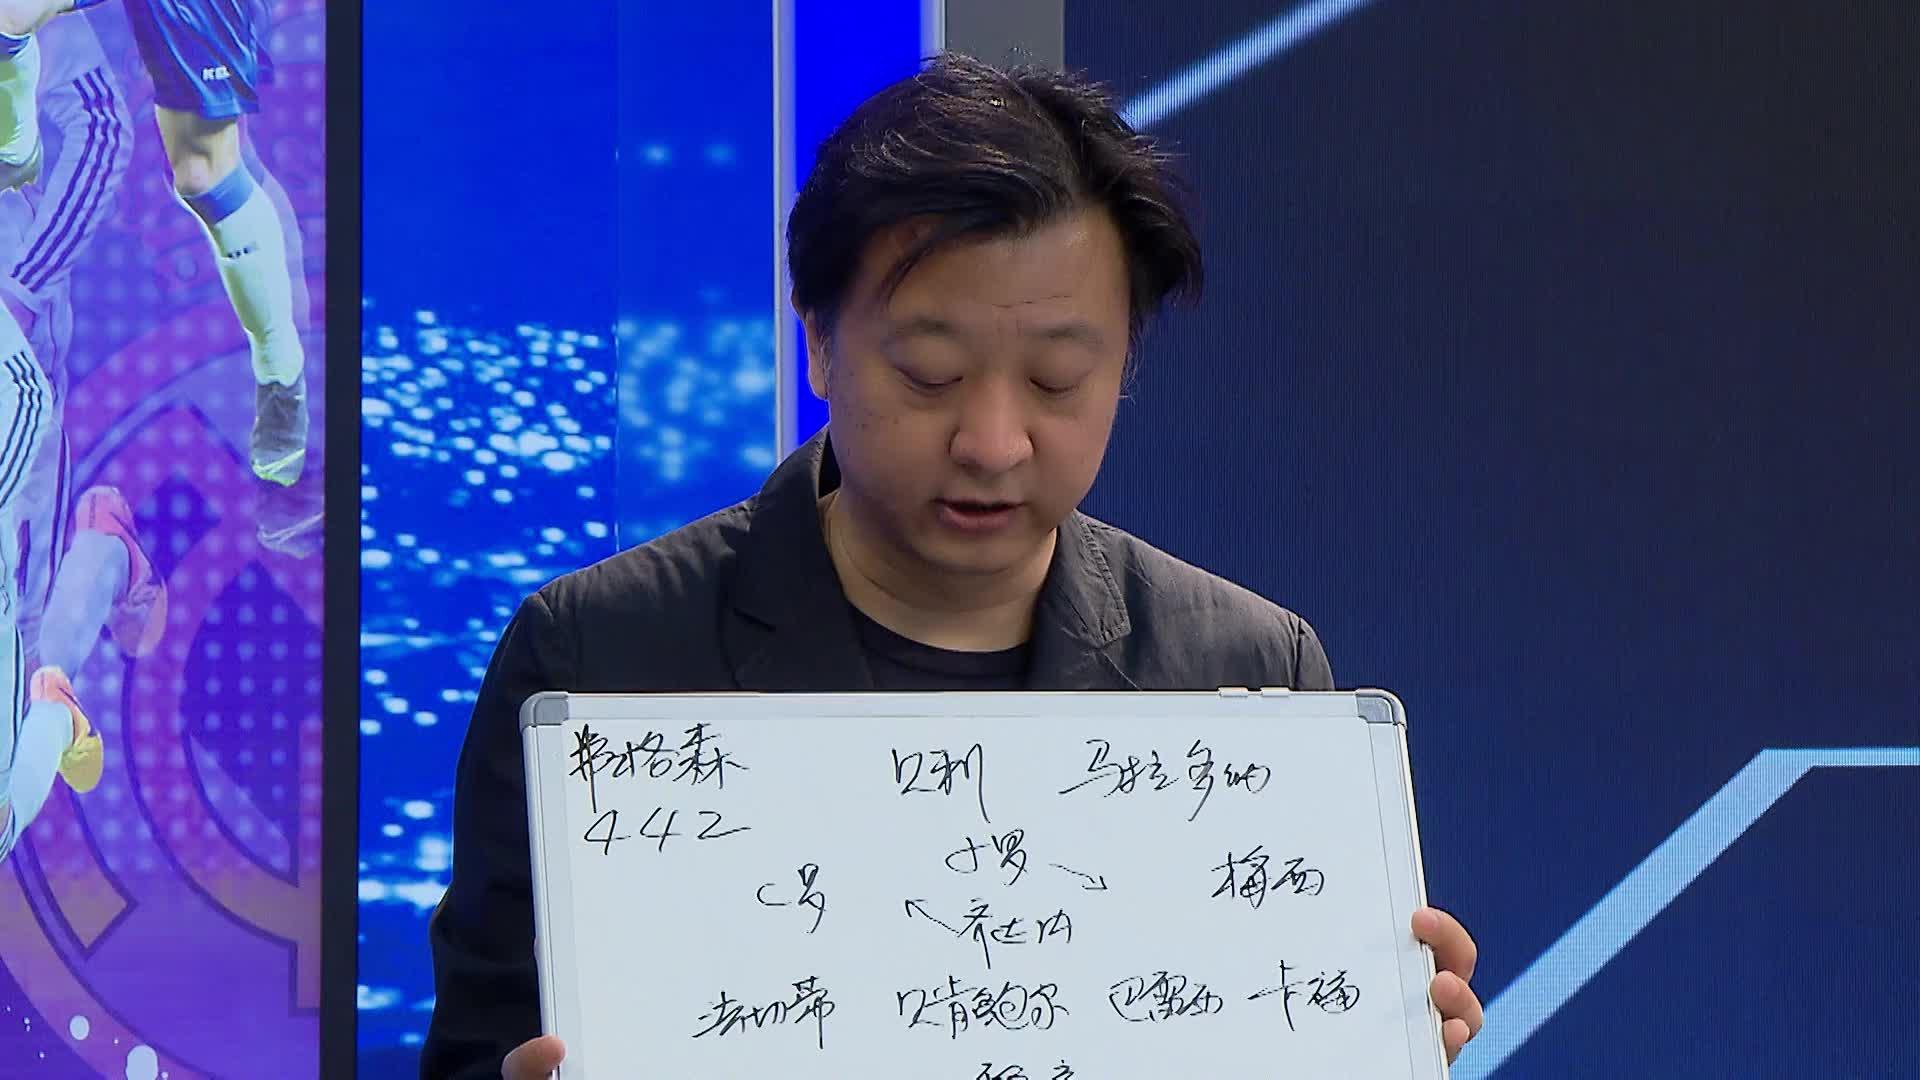 弗格森 贝利 马拉多纳
442
小罗
C罗 梅西
齐达内
法切蒂 贝肯鲍尔 巴雷西 卡福